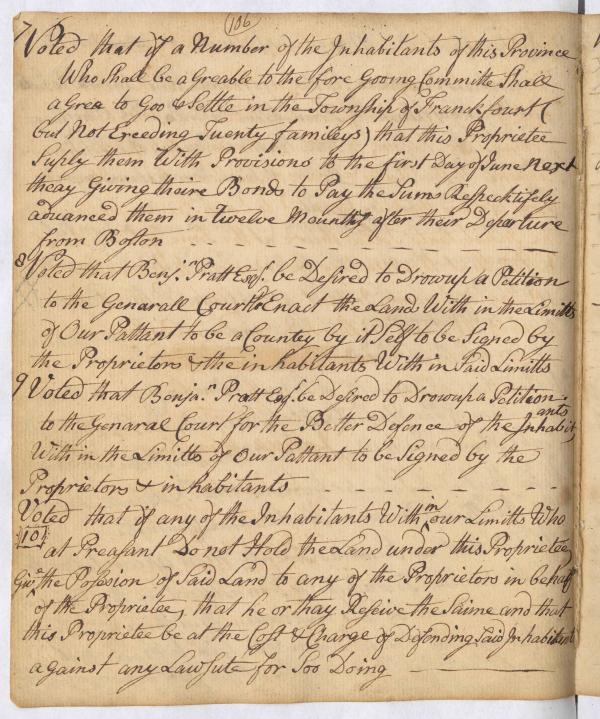 106
7 Voted that if a Number of the Inhabitants of this Province
Who Shall be a Greable to the fore Gooing Committe Shall
a Grea to Goo & Settle in the Township of Franckfourt (
but Not Exceeding Twenty famileys) that this Proprietee
Suply them With Provisions to the first Day of June Next
theay Giving theire Bonds to Pay the Sums Respecktifely
advanced them in twelve Mounths after their Departure
from Boston
8 Voted that Benj:n Pratt Esq: be Desired to Drowup a Petition
to the Genarall Court to Enact the Land With in the Limitts
of Our Pattant to be a Countey by it Self to be Signed by
the Proprietors & the in habitants With in Said Limitts
9 Voted that Benja:n Pratt Esq: be Desired to Drowup a Petition
to the Genaral Court for the Better Defence of the Inhabitants
With in the Limitts of Our Pattant to be Signed by the
Proprietors & in habitants
Voted that if any of the Inhabitants With in our Limitts Who
10 at Preasant Do not Hold the Land under this Proprietee
Give the Posession of Said Land to any of the Proprietors in behalf
of the Proprietee, that he or thay Reseive the Saime and that
this Proprietee be at the Cost & Charge of Defending Said Inhabitant
against any Law Sute for Soo Doing